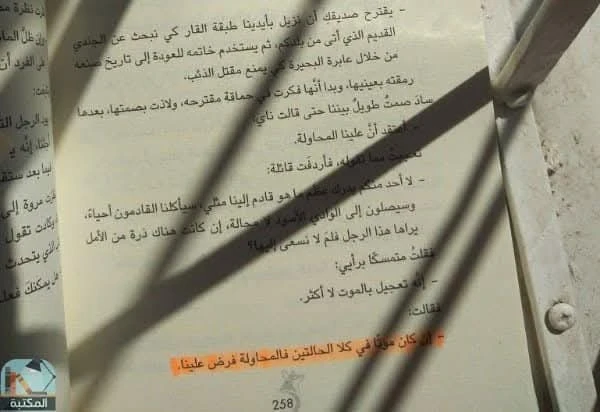 - يقترح صديقك أن نزيل بأيدينا طبقة القار كي نبحث عن الجندي
القديم الذي أتى من بلدكم، ثم يستخدم خاتمه للعودة إلى تاريخ صنعه
من خلال عابرة البحيرة كي يمنع مقتل الذئب.
رمقته بعينيها، وبدا أنّها فكرت في حماقة مقترحه، ولاذت بصمتها، بعدها
سادَ صمتٌ طويلٌ بيننا حتى قالت ناي:
- أعتقد أنَّ علينا المحاولة.
تعجبتُ مما تقوله، فأردفَت قائلة:
- لا أحد منكم يدرك عظم ما هو قادم إلينا مثلي، سيأكلنا القادمون أحياءً،
وسيصلون إلى الوادي الأسود لا محالة، إن كانت هناك ذرة من الأمل
يراها هذا الرجل فلمَ لا نسعى إليها؟
فقلتُ متمسكًا برأيي:
- إنَّه تعجيل بالموت لا أكثر.
فقالت:
- إن كان موتًا في كلا الحالتين فالمحاولة فرض علينا.
258
المكتبة